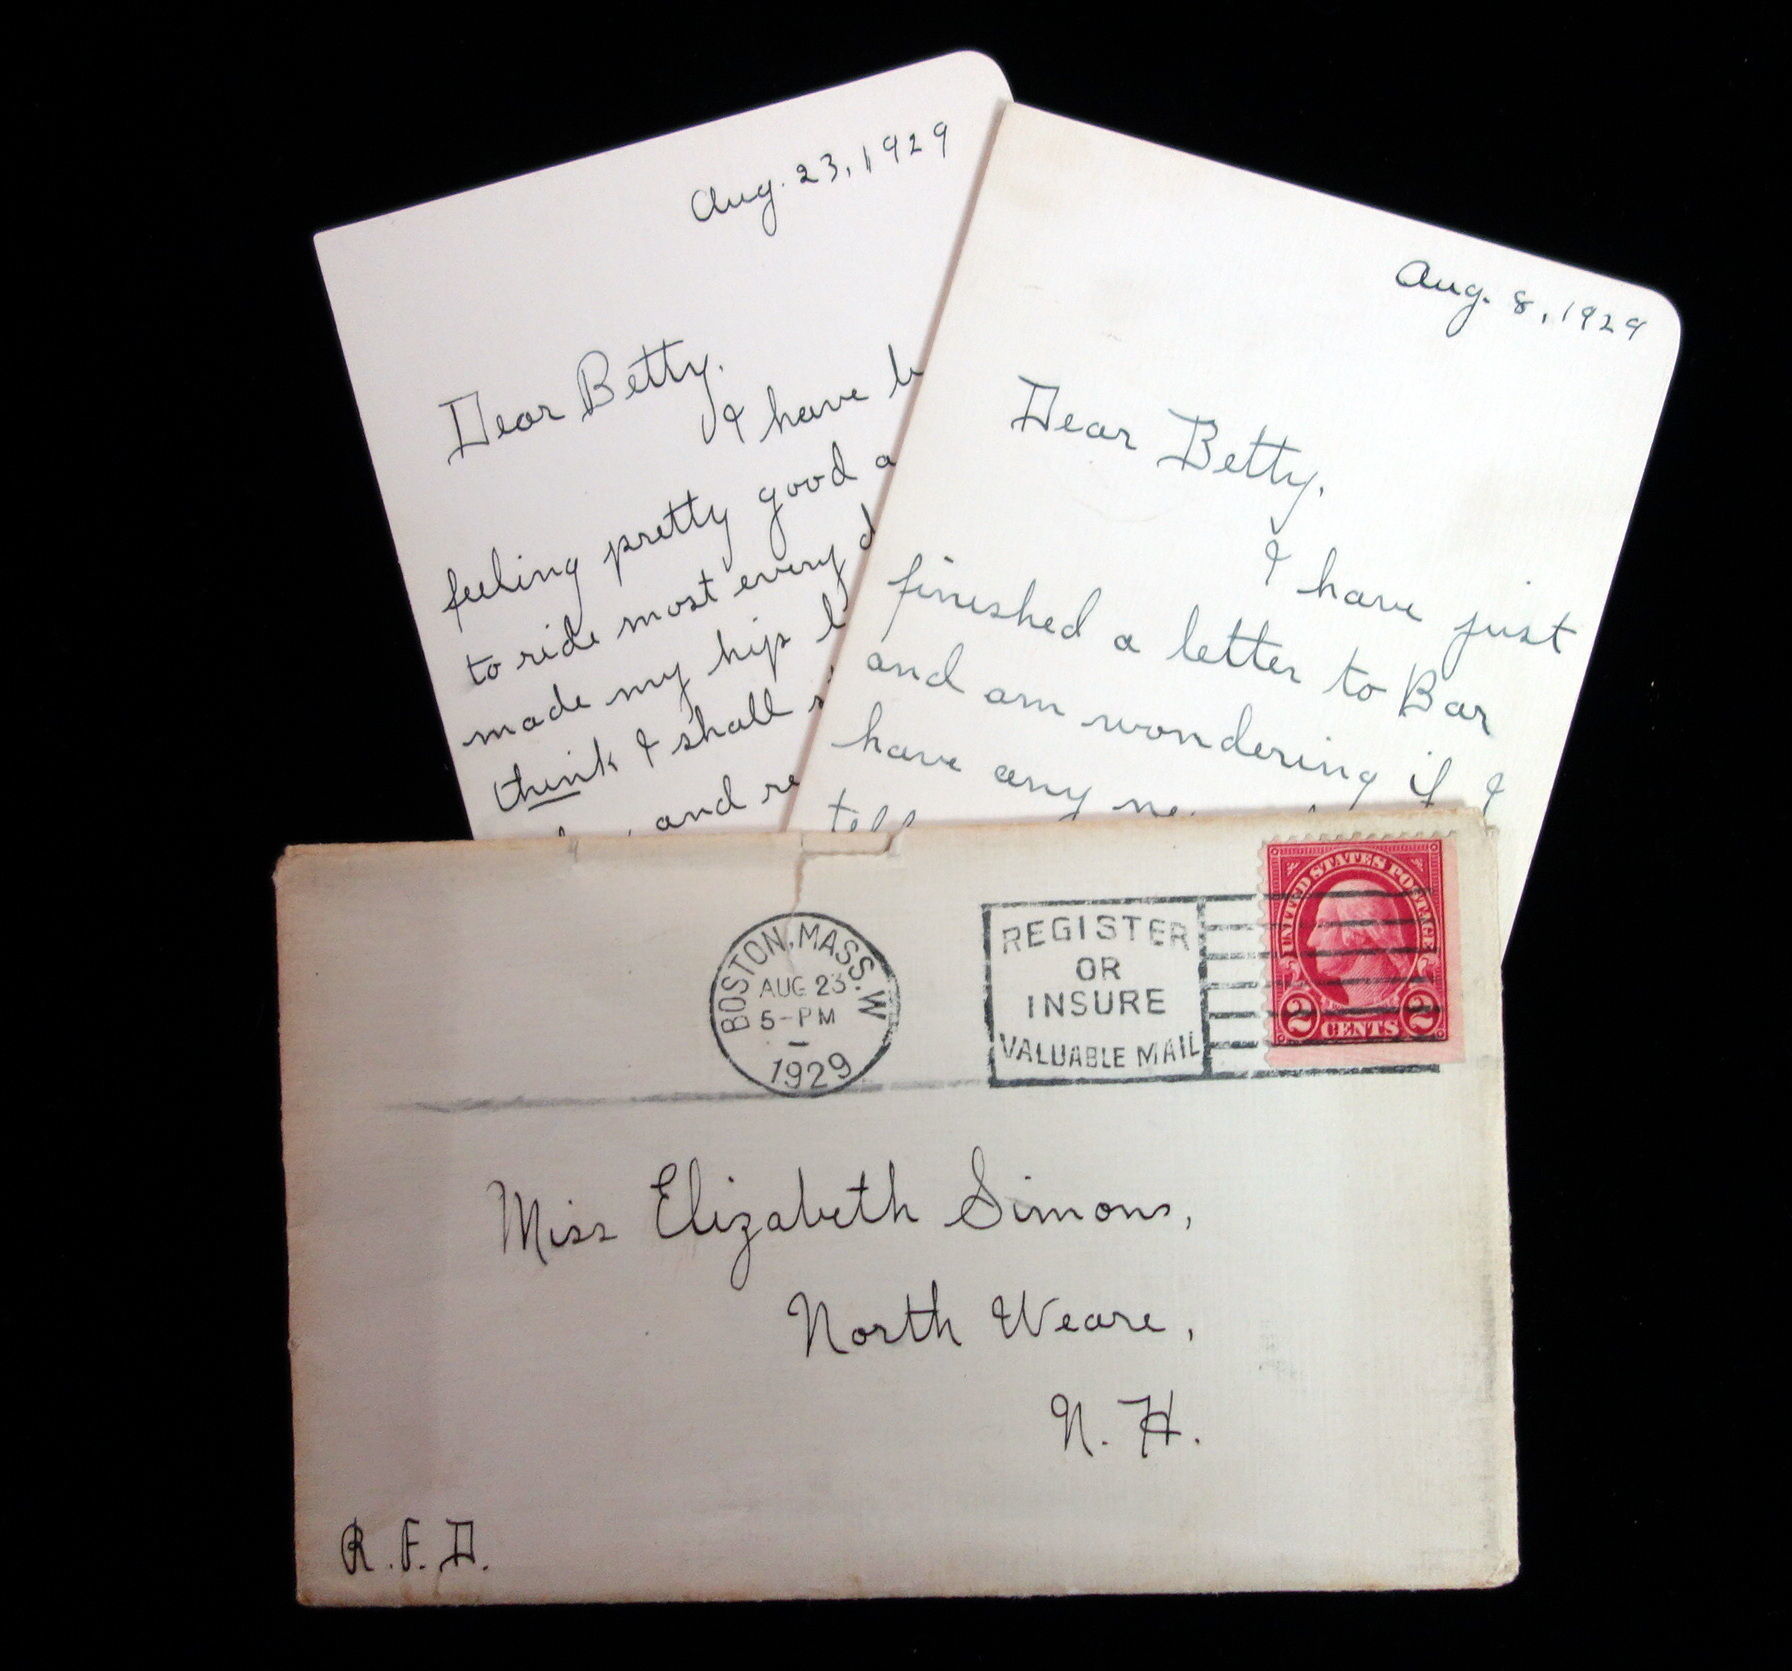 Aug. 23, 1929
Dear Betty,
I have
feeling pretty good
to ride most every
made my hip
think I shall
and
Aug. 8, 1929
Dear Betty,
I have just
finished a letter to Bar
and am wondering if I
have any
BOSTON, MASS. W
AUG 23
5-PM
1929
REGISTER
OR
INSURE
VALUABLE MAIL
UNITED STATES POSTAGE
2 CENTS 2
Miss Elizabeth Simons,
North Weare,
N. H.
R. F. D.